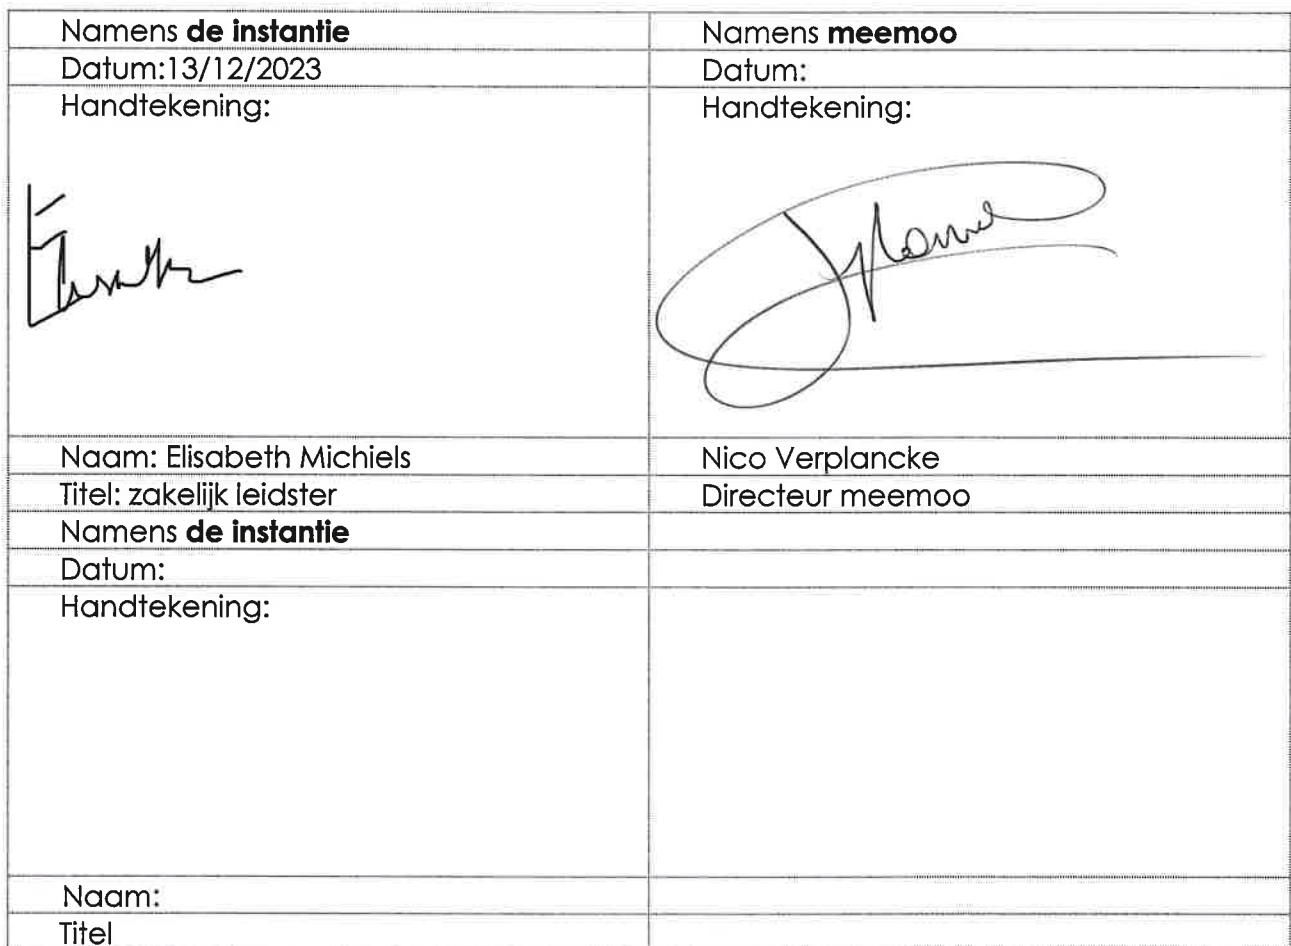 Namens de instantie
Namens meemoo
Datum:13/12/2023
Datum:
Handtekening:
Handtekening:
Naam: Elisabeth Michiels
Nico Verplancke
Titel: zakelijk leidster
Directeur meemoo
Namens de instantie
Datum:
Handtekening:
Naam:
Titel